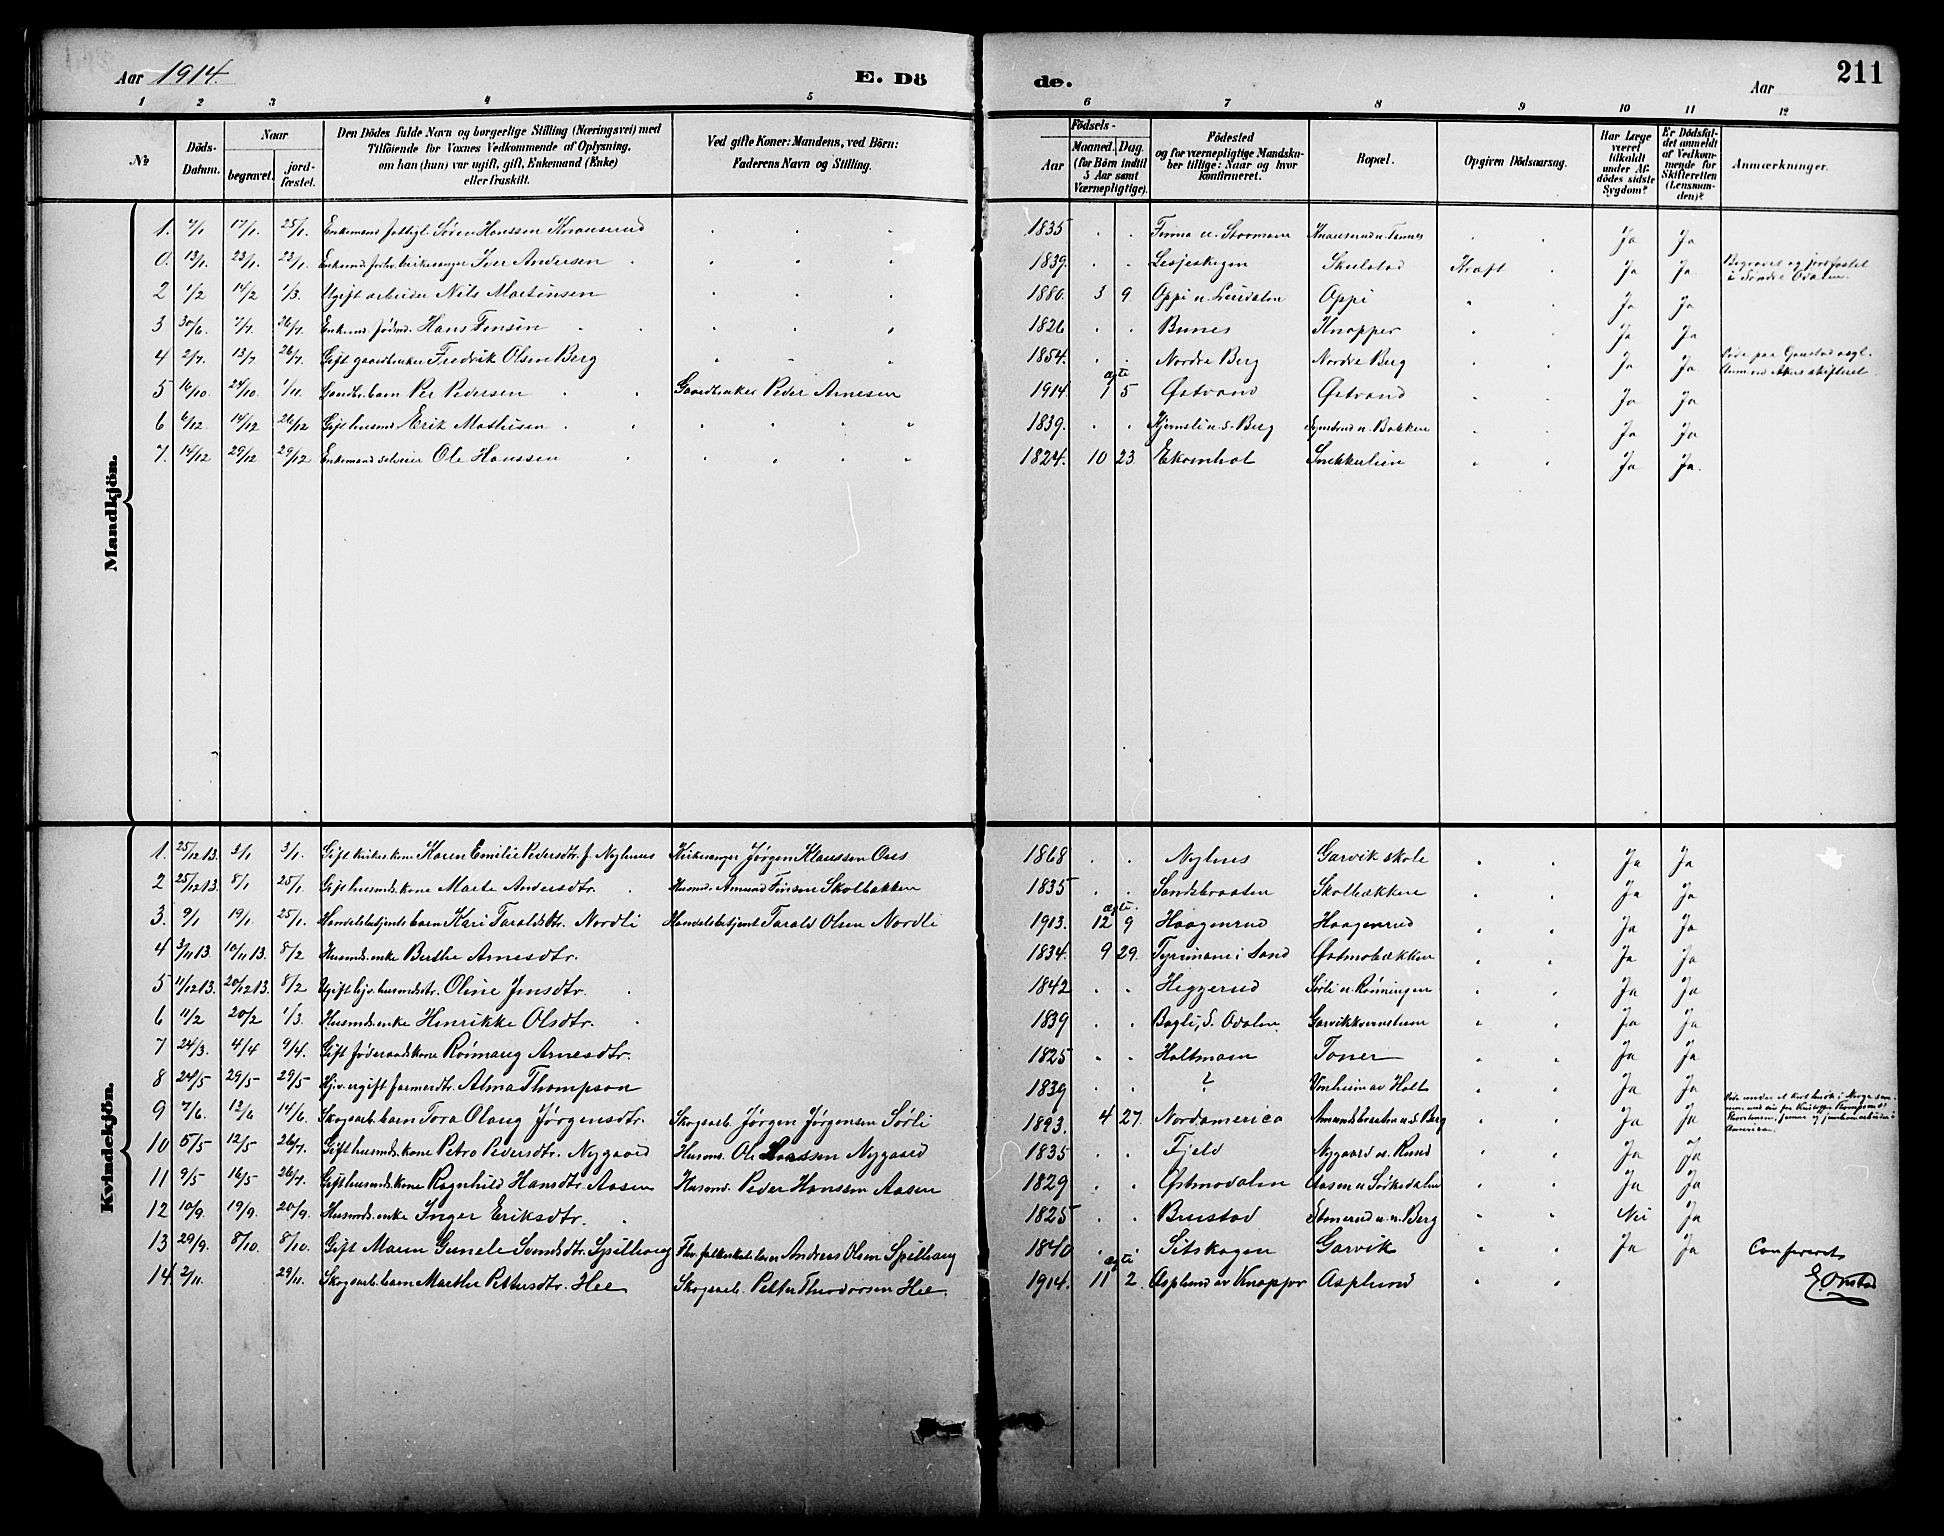 Aar 1914. E. Dö de. Aar 211
1 2 3 4 5 6 7 8 9 10 11 12
No
Döds-Datum.
Naar
begravet.
jordfæstet.
Den Dödes fulde Navn og borgerlige Stilling (Næringsvei) med
Tilföiende for Voxnes Vedkommende af Oplysning,
om han (hun) var ugift, gift, Enkemand (Enke)
eller fraskilt.
Ved gifte Koner: Mandens, ved Börn:
Faderens Navn og Stilling.
Födsels-
Aar
Maaned. Dag.
(for Börn indtil
5 Aar samt
Værnepligtige).
Födested
og for værnepligtige Mandskaber
tillige: Naar og hvor
konfirmeret.
Bopæl.
Opgiven Dödsaarsag.
Har Læge
været
tilkaldt
under Afdödes
sidste
Sygdom?
Er Dödsfaldet
anmeldt
af Vedkommende
for
Skifteretten
(Lensmanden)?
Anmærkninger.
Mandkjön.
1. 7/1 17/1. 25/1. Enkemand Søren Hanssen Knausrud 1835 Ja Ja
0. 13/1. 23/1. 23/1. Enkemd. Iver Andersen 1839. Lesjeskogen Skulstad Kraft Ja Ja. Begravet og jordfæstet i Søndre Odalen.
2 1/2 14/2 1/3. Ugift arbeider Nils Martinsen 1880. 3 9 Oppi Ja Ja
3 30/6. 7/7. 26/7. Enkemd. Hans Finsen 1826 Bunes Knapper Ja Ja
4 2/7. 13/7 26/7. Gift gaardbruker Fredrik Olsen Berg 1854. Nordre Berg Nordre Berg Ja Ja
5 16/10. 24/10. 1/11. Gaardbr. barn Per Pedersen Gaardbruker Peder Arnesen 1914. ægte 7 5 Østvand Østvand Ja Ja
6 6/12 14/12 26/12 Gift husmd. Erik Mathisen 1839. Ja Ja
7. 14/12 29/12 29/12 Enkemand selveier Ole Hanssen 1824. 10 23. Ekornhol Snekkerlien Ja Ja.
Kvindekjön.
1. 25/12 13. 3/1 3/1. Gift kirkes. kone Karen Emilie Pedersdtr. f. Nyhus Kirkesanger Jørgen Klaussen Ous 1868 Nyhus Garvik skole Ja Ja
2 25/12 13. 8/1 25/1. Gift husmds. kone Marte Andersdtr. Husmd. Amund Finsen Skolbækken 1835 Sandsbraaten Skolbækken Ja Ja
3. 9/1 19/1. 25/1. Handelsbetjents barn Kari Taraldsdtr. Nordli Handelsbetjent Tarald Olsen Nordli 1913. ægte. 12 9 Haagenrud Haagenrud Ja Ja
4 3/11 13. 10/11 13. 8/2 Husmds. enke Berthe Arnesdtr. 1834. 9 29. Tyrimane i Sand Østmobækken Ja Ja
5 11/12 13. 20/12 13. 8/2 Ugift husmdsdtr. Oline Jensdtr. 1842 Heggerud Sørli u. Rønningen Ja Ja
6 11/2 20/2 1/3. Husmds. enke Henrikke Olsdtr. 1839 Bagli, S. Odalen Ja Ja
7 24/3. 4/4 9/4. Gift føderaadskone Rønnaug Arnesdtr. 1825 Holtmoen Toner Ja Ja
8 24/5 29/5 29/5 Alma Thompson 1839 ? Vonheim av Holt Ja Ja
9 7/6. 12/6 14/6. Skogsarb. barn Tora Olaug Jørgensdtr. Skogsarb. Jørgen Jørgensen Sørli 1893. 4 27. Nordamerica Amundsbraaten u. S. Berg Ja Ja America.
10 5/5 12/5 26/7. Gift husmds. kone Petra Pedersdtr. Nygaard Husmd. Ole Larssen Nygaard 1835 Fjeld Nygaard u. Rud Ja Ja
11 9/5 16/5 26/7. Gift husmds. kone Ragnhild Hansdtr. Aasen Husmd. Peder Hanssen Aasen 1829 Østmodalen Aasen u. Sørkedalen Ja Ja
12 10/9. 19/9. 20/9. Husmds. enke Inger Eriksdtr. 1825 Brustad u. n. Berg Nei Ja
13 29/9. 8/10. 8/10. Gift Maren Gunele Spilhaug Andreas Olsen Spilhaug 1840 Setskogen Garvik Ja Ja Confereret
14 2/11. 29/11. Skogsarb. barn Marthe Pettersdtr. Hee Skogsarb. Petter Theodorsen Hee 1914. ægte 11 2. Asplund av Knapper Asplund E. Onstad